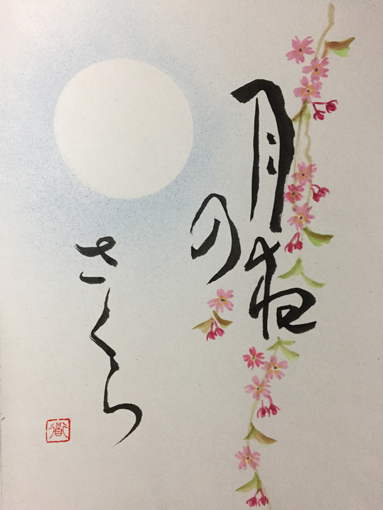 月夜
の
さくら